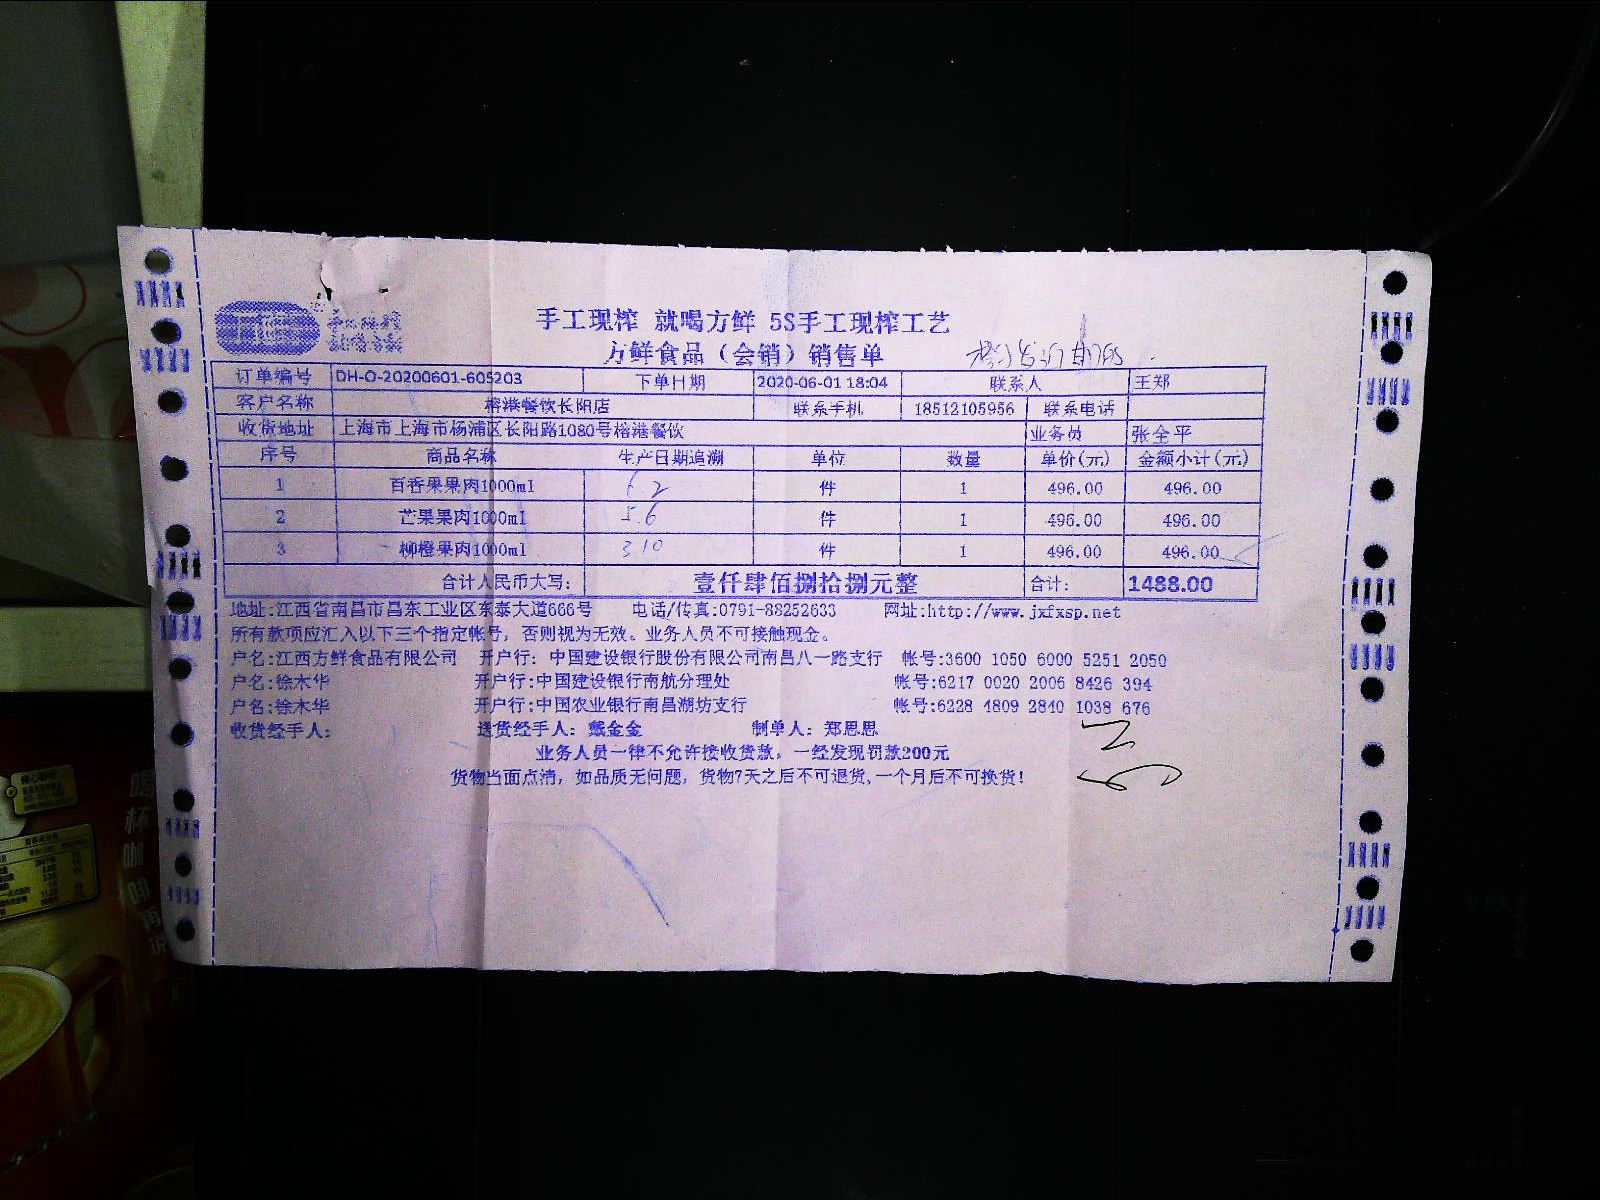 手工现榨 就喝方鲜 5S手工现榨工艺
方鲜食品（会销）销售单
订单编号 DH-O-20200601-605203 下单日期 2020-06-01 18:04 联系人 王郑
客户名称 榕港餐饮长阳店 联系手机 18512105956 联系电话
收货地址 上海市上海市杨浦区长阳路1080号榕港餐饮 业务员 张全平
序号 商品名称 生产日期追溯 单位 数量 单价(元) 金额小计(元)
1 百香果果肉1000ml 6.2 件 1 496.00 496.00
2 芒果果肉1000ml 5.6 件 1 496.00 496.00
3 柳橙果肉1000ml 3.10 件 1 496.00 496.00
合计人民币大写: 壹仟肆佰捌拾捌元整 合计: 1488.00
地址:江西省南昌市昌东工业区东泰大道666号 电话/传真:0791-88252633 网址:http://www.jxfxsp.net
所有款项应汇入以下三个指定帐号，否则视为无效。业务人员不可接触现金。
户名:江西方鲜食品有限公司 开户行: 中国建设银行股份有限公司南昌八一路支行 帐号:3600 1050 6000 5251 2050
户名:徐木华 开户行:中国建设银行南航分理处 帐号:6217 0020 2006 8426 394
户名:徐木华 开户行:中国农业银行南昌湖坊支行 帐号:6228 4809 2840 1038 676
收货经手人: 送货经手人: 戴金金 制单人: 郑思思
业务人员一律不允许接收货款，一经发现罚款200元
货物当面点清，如品质无问题，货物7天之后不可退货,一个月后不可换货!
喝杯咖啡再说